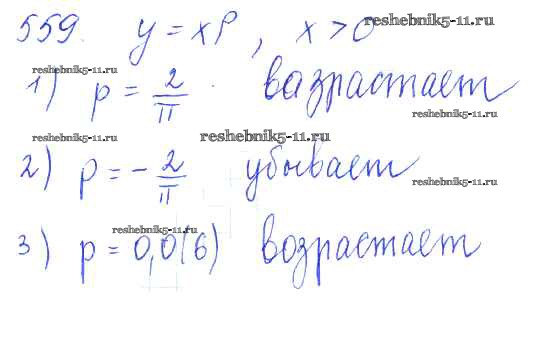 559. y = xᵖ, x > 0
reshebnik5-11.ru
reshebnik5-11.ru
1) p = 2/π вазрастает
reshebnik5-11.ru
reshebnik5-11.ru
reshebnik5-11.ru
2) p = - 2/π убывает
reshebnik5-11.ru
reshebnik5-11.ru
3) p = 0,0(6) возрастает